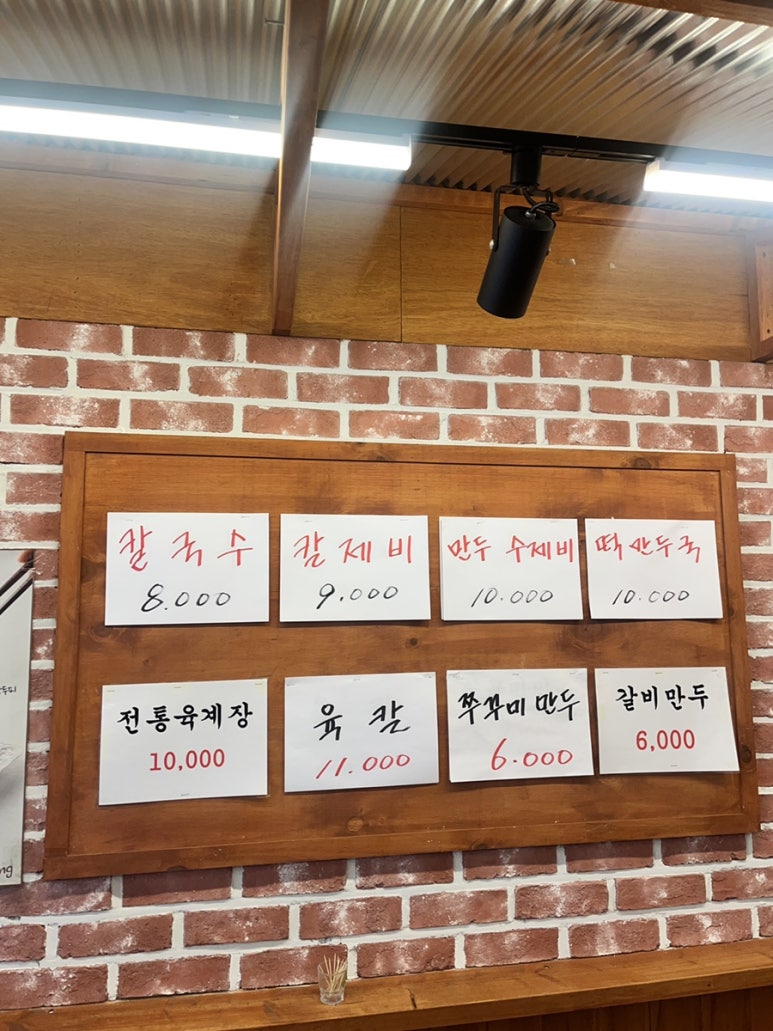 칼국수
8.000
칼제비
9.000
만두 수제비
10.000
떡만두국
10.000
전통육계장
10,000
육칼
11.000
쭈꾸미만두
6.000
갈비만두
6,000